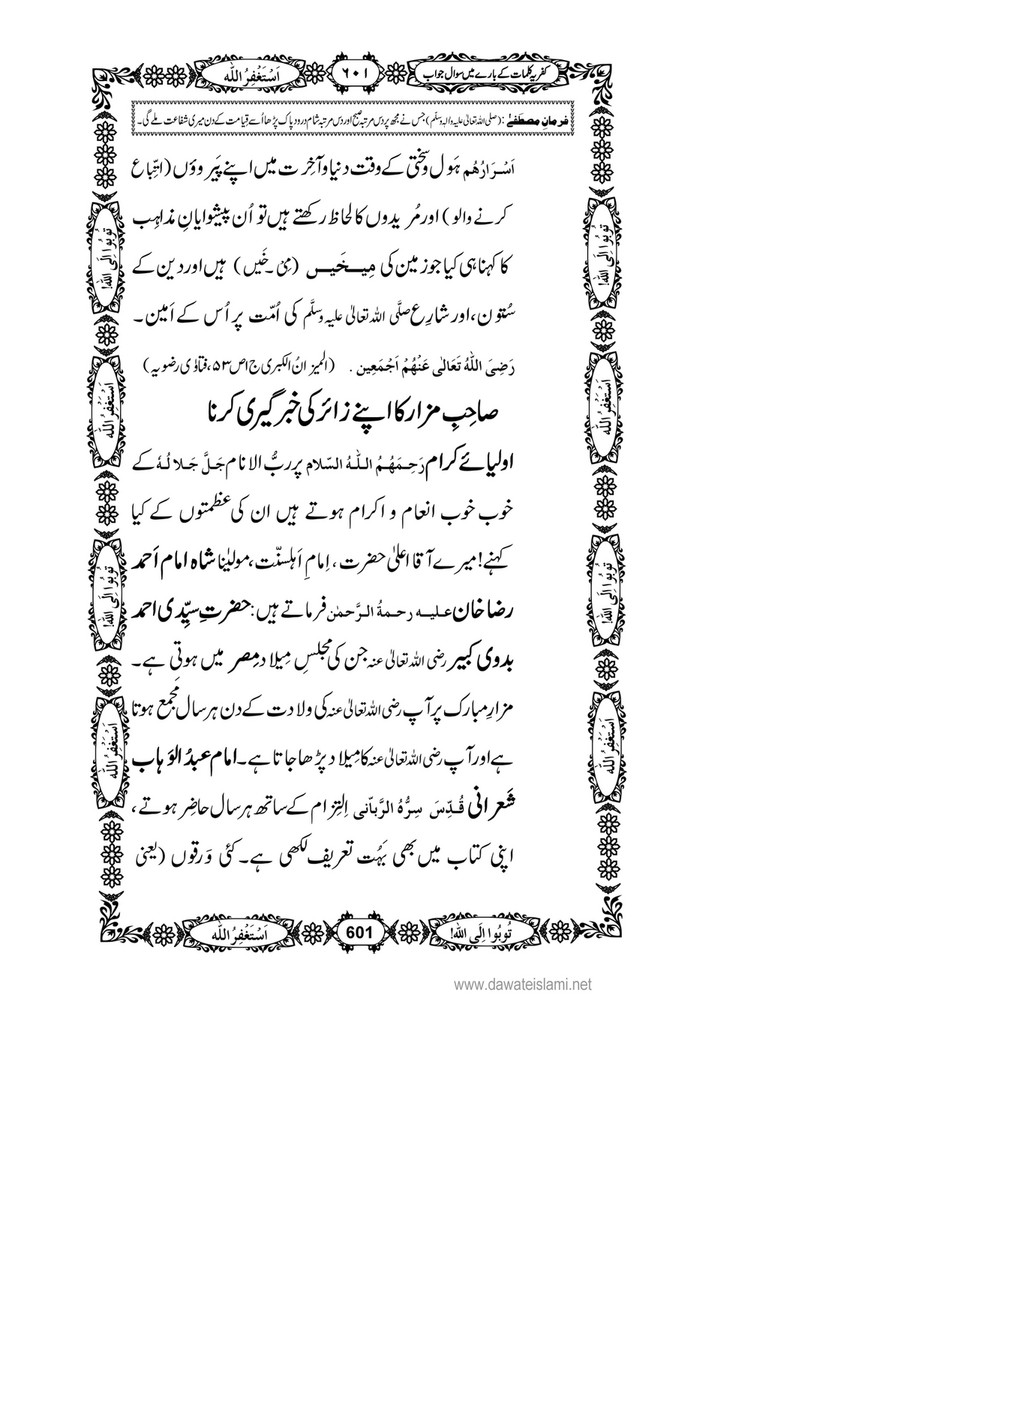 کفریہ کلمات کے بارے میں سوال جواب
٦٠١
اَسْتَغْفِرُ اللّٰه
فرمانِ مصطفےٰ: (صلی اللہ تعالیٰ علیہ والہ وسلّم) جس نے مجھ پر دس مرتبہ صبح اور دس مرتبہ شام درود پاک پڑھا اُسے قیامت کے دن میری شفاعت ملے گی۔
اَسْرَارُهُم ہَول و سختی کے وقت دنیا و آخِرت میں اپنے پَیروؤں (اتِّباع
کرنے والو) اور مُریدوں کا لحاظ رکھتے ہیں تو اُن پیشوایانِ مذاہِب
کا کہنا ہی کیا جو زمین کی مِیخَیں (مِیْ۔خَیں) ہیں اور دین کے
سُتون، اور شارِع صلَّی اللہ تعالیٰ علیہ وسلَّم کی اُمّت پر اُس کے اَمین۔
رَضِیَ اللّٰهُ تَعَالٰی عَنْهُمْ اَجْمَعِین۔ (المیزانُ الکبری ج۱ص۵۳، فتاوٰی رضویہ)
صاحِبِ مزار کا اپنے زائر کی خبر گیری کرنا
اولیائے کرام رَحِمَهُمُ اللّٰهُ السّلام پر ربُّ الانام جَلَّ جَلَالُهٗ کے
خوب خوب انعام و اکرام ہوتے ہیں ان کی عظمتوں کے کیا
کہنے! میرے آقا اعلیٰ حضرت، اِمامِ اَہلسنّت، مولیٰنا شاہ امام اَحمد
رضا خان علیه رحمةُ الرَّحمٰن فرماتے ہیں: حضرتِ سیِّدی احمد
بدوی کبیر رضی اللہ تعالیٰ عنہ جن کی مجلسِ مِیلاد مِصر میں ہوتی ہے۔
مزارِ مبارک پر آپ رضی اللہ تعالیٰ عنہ کی ولادت کے دن ہر سال مجمع ہوتا
ہے اور آپ رضی اللہ تعالیٰ عنہ کا مِیلاد پڑھا جاتا ہے۔ امام عبدُ الوَہاب
شَعرانی قُدِّسَ سِرُّهُ الرَّبّانی اِلتِزام کے ساتھ ہر سال حاضِر ہوتے،
اپنی کتاب میں بھی بَہُت تعریف لکھی ہے۔ کئی وَرقوں (یعنی
تُوبُوا اِلَی اللّٰه!
اَسْتَغْفِرُ اللّٰه
تُوبُوا اِلَی اللّٰه!
اَسْتَغْفِرُ اللّٰه
تُوبُوا اِلَی اللّٰه!
اَسْتَغْفِرُ اللّٰه
تُوبُوا اِلَی اللّٰه!
اَسْتَغْفِرُ اللّٰه
تُوبُوا اِلَی اللّٰه!
601
اَسْتَغْفِرُ اللّٰه
www.dawateislami.net